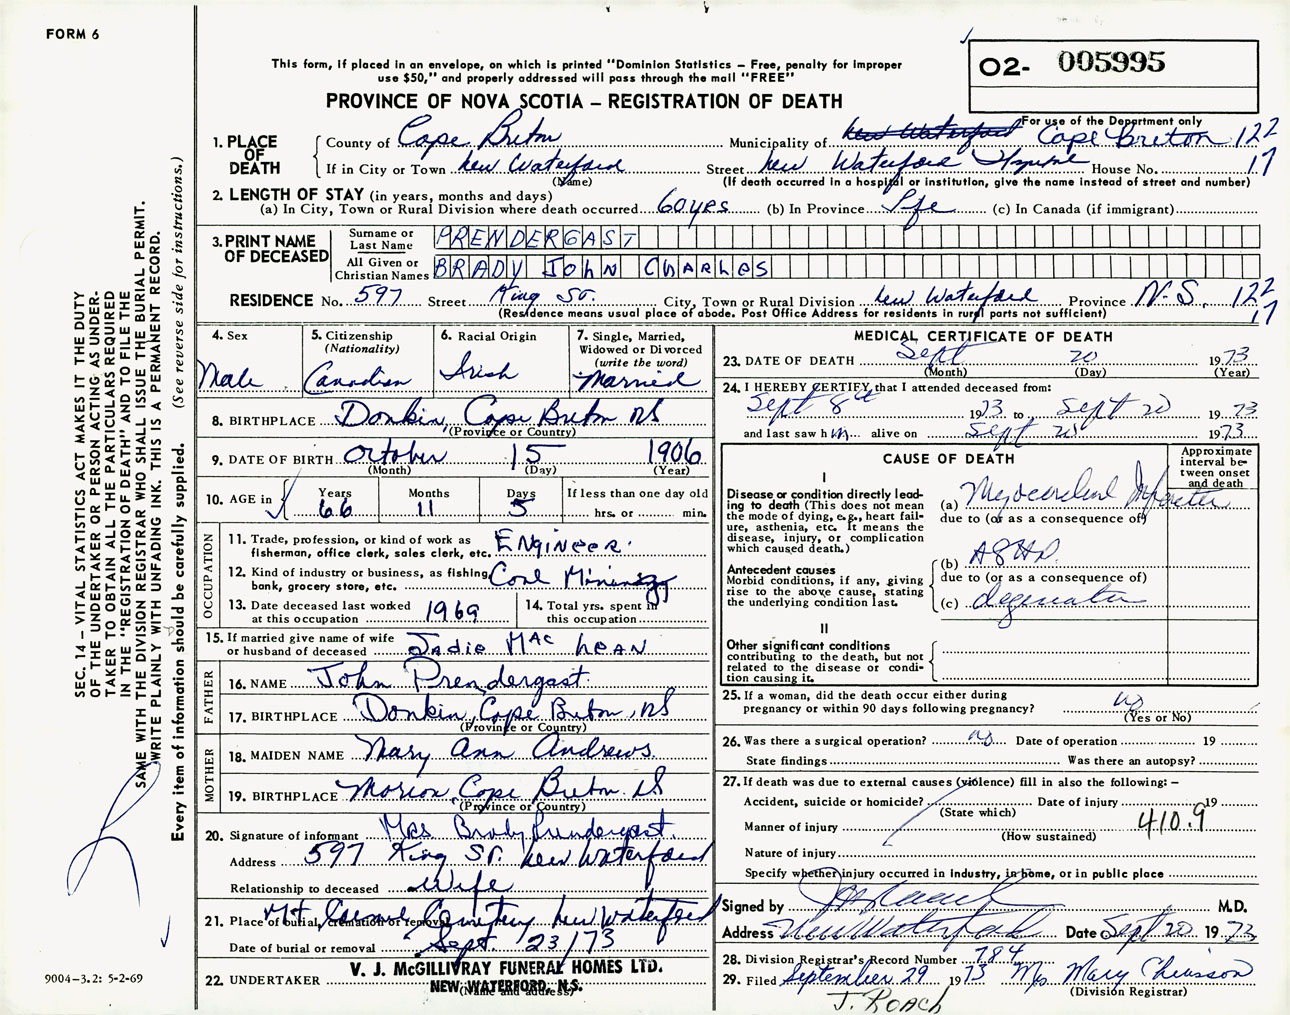 FORM 6
This form, if placed in an envelope, on which is printed "Dominion Statistics – Free, penalty for improper
use $50," and properly addressed will pass through the mail "FREE"
O2- 005995
PROVINCE OF NOVA SCOTIA – REGISTRATION OF DEATH
For use of the Department only
1. PLACE OF DEATH
County of Cape Breton Municipality of New Waterford Cape Breton 122
If in City or Town New Waterford Street New Waterford House No. 17
(Name) (If death occurred in a hospital or institution, give the name instead of street and number)
2. LENGTH OF STAY (in years, months and days)
(a) In City, Town or Rural Division where death occurred 60 yrs (b) In Province Life (c) In Canada (if immigrant)
3. PRINT NAME OF DECEASED
Surname or Last Name PRENDERGAST
All Given or Christian Names BRADY JOHN CHARLES
RESIDENCE No. 597 Street King St. City, Town or Rural Division New Waterford Province N.S. 122
(Residence means usual place of abode. Post Office Address for residents in rural parts not sufficient) 17
4. Sex Male
5. Citizenship (Nationality) Canadian
6. Racial Origin Irish
7. Single, Married, Widowed or Divorced (write the word) Married
8. BIRTHPLACE Donkin, Cape Breton NS
(Province or Country)
9. DATE OF BIRTH October 15 1906
(Month) (Day) (Year)
10. AGE in Years 66 Months 11 Days 5 If less than one day old
hrs. or min.
OCCUPATION
11. Trade, profession, or kind of work as fisherman, office clerk, sales clerk, etc. ENGINEER.
12. Kind of industry or business, as fishing, bank, grocery store, etc. Coal Mining
13. Date deceased last worked at this occupation 1969
14. Total yrs. spent in this occupation
15. If married give name of wife or husband of deceased Sadie MacLean
FATHER
16. NAME John Prendergast
17. BIRTHPLACE Donkin, Cape Breton, NS
(Province or Country)
MOTHER
18. MAIDEN NAME Mary Ann Andrews.
19. BIRTHPLACE Morion, Cape Breton. NS
(Province or Country)
20. Signature of informant Mrs Brady Prendergast.
Address 597 King St. New Waterford
Relationship to deceased Wife
21. Place of burial, cremation or removal Mt. Carmel Cemetery New Waterford
Date of burial or removal Sept. 23/73
22. UNDERTAKER V. J. McGILLIVRAY FUNERAL HOMES LTD.
NEW WATERFORD, N.S.
(Name and address)
MEDICAL CERTIFICATE OF DEATH
23. DATE OF DEATH Sept 20 1973
(Month) (Day) (Year)
24. I HEREBY CERTIFY that I attended deceased from:
Sept 8th 1973 to Sept 20 1973
and last saw him alive on Sept 20 1973
CAUSE OF DEATH
Approximate interval between onset and death
I
Disease or condition directly leading to death (This does not mean the mode of dying, e.g., heart failure, asthenia, etc. It means the disease, injury, or complication which caused death.)
(a) Myocardial Infarction
due to (or as a consequence of)
Antecedent causes
Morbid conditions, if any, giving rise to the above cause, stating the underlying condition last.
(b) ASHD.
due to (or as a consequence of)
(c)
II
Other significant conditions
contributing to the death, but not related to the disease or condition causing it.
25. If a woman, did the death occur either during pregnancy or within 90 days following pregnancy? no
(Yes or No)
26. Was there a surgical operation? no Date of operation 19
State findings Was there an autopsy?
27. If death was due to external causes (violence) fill in also the following: –
Accident, suicide or homicide? Date of injury 19
(State which)
Manner of injury 410.9
(How sustained)
Nature of injury
Specify whether injury occurred in industry, in home, or in public place
Signed by M.D.
Address New Waterford Date Sept 20 1973
28. Division Registrar's Record Number 784
29. Filed September 29 1973 Mrs Mary Chiasson
(Division Registrar)
J. ROACH
SEC. 14 – VITAL STATISTICS ACT MAKES IT THE DUTY
OF THE UNDERTAKER OR PERSON ACTING AS UNDER-
TAKER TO OBTAIN ALL THE PARTICULARS REQUIRED
IN THE "REGISTRATION OF DEATH" AND TO FILE THE
SAME WITH THE DIVISION REGISTRAR WHO SHALL ISSUE THE BURIAL PERMIT.
WRITE PLAINLY WITH UNFADING INK. THIS IS A PERMANENT RECORD.
Every item of information should be carefully supplied. (See reverse side for instructions.)
9004–3.2: 5-2-69